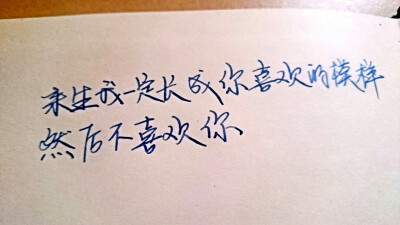 来生我一定长成你喜欢的模样
然后不喜欢你